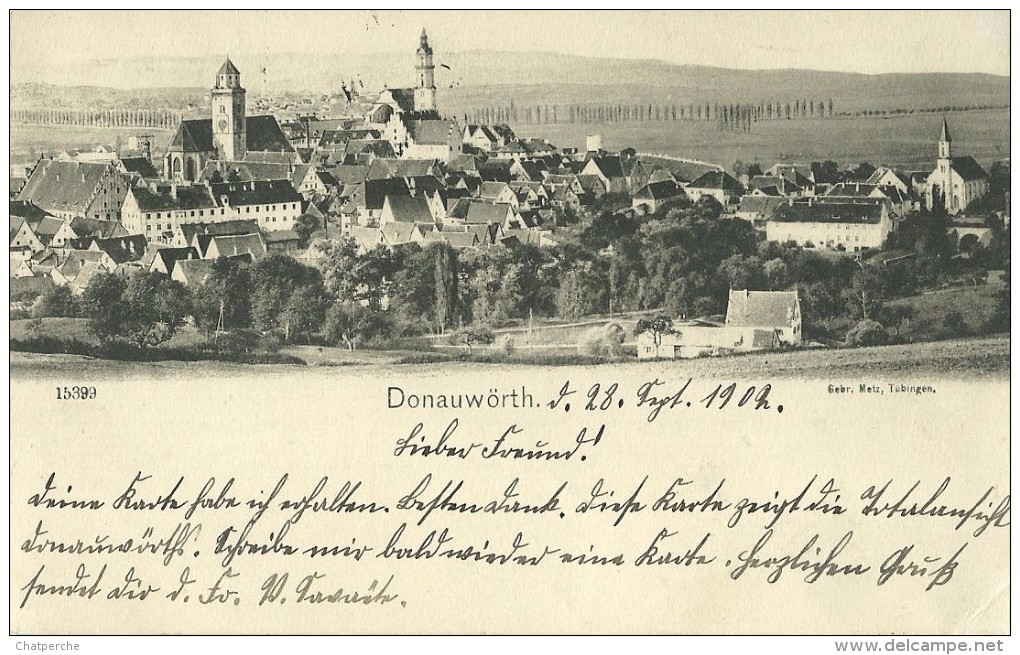 15399
Donauwörth. d. 28. Sept. 1902.
Gebr. Metz, Tübingen.
Lieber Freund!
Deine Karte habe ich erhalten. Besten Dank. Diese Karte zeigt die Totalansicht
Donauwörths. Schreibe mir bald wieder eine Karte. Herzlichen Gruß
sendet Dir d. Fr.
Chatperche
www.delcampe.net